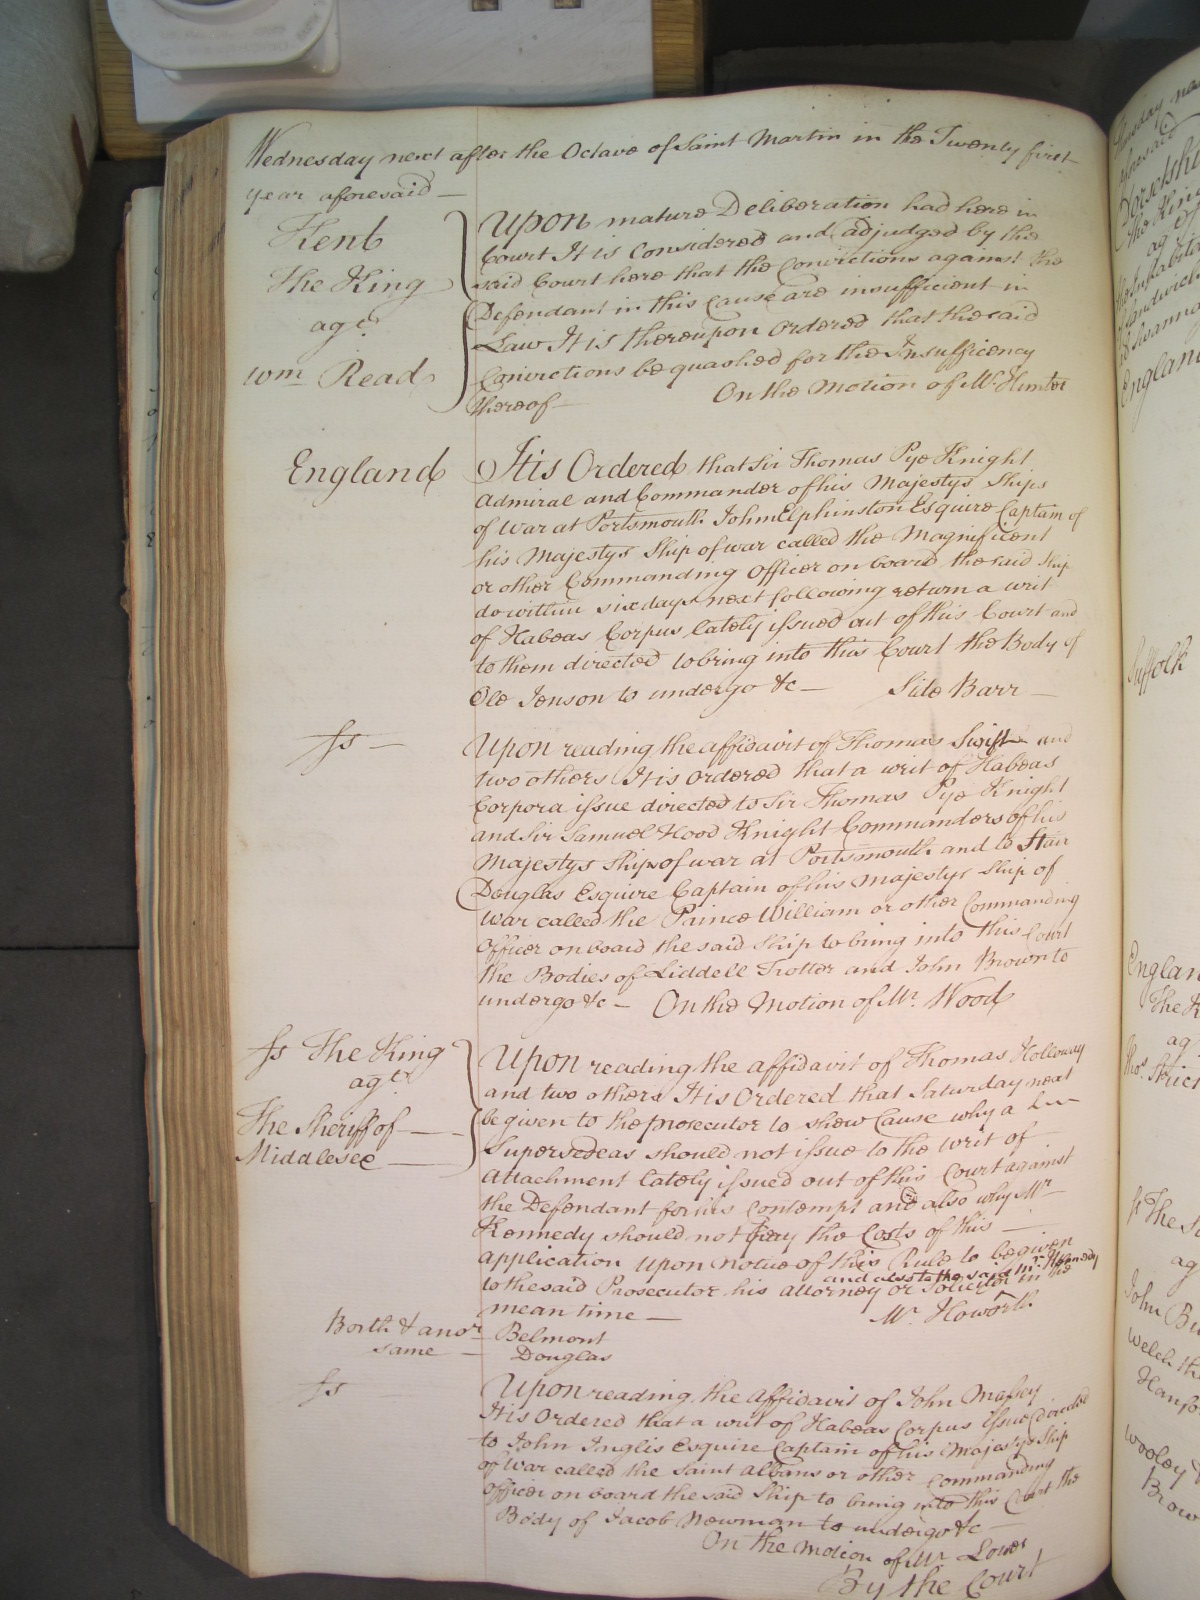 Wednesday next after the Octave of Saint Martin in the Twenty first
year aforesaid —
Kent
The King
agt.
Wm Read
Upon mature Deliberation had here in
Court It is Considered and adjudged by the
said Court here that the Convictions against the
Defendant in this Cause are insufficient in
Law It is thereupon Ordered that the said
Convictions be quashed for the Insufficency
thereof — On the Motion of Mr. Hunter
England
It is Ordered that Sir Thomas Pye Knight
Admiral and Commander of his Majestys Ships
of War at Portsmouth John Elphinston Esquire Captain of
his Majestys Ship of war called the Magnificent
or other Commanding Officer on board the said Ship
do within six days next following return a writ
of Habeas Corpus lately issued out of this Court and
to them directed to bring into this Court the Body of
Ole Jenson to undergo &c — Side Barr —
Upon reading the affidavit of Thomas Swift and
two others It is Ordered that a writ of Habeas
Corpora issue directed to Sir Thomas Pye Knight
and Sir Samuel Hood Knight Commanders of his
Majestys Ships of war at Portsmouth and to Stair
Douglas Esquire Captain of his Majestys Ship of
War called the Prince William or other Commanding
Officer on board the said Ship to bring into this Court
the Bodies of Liddell Trotter and John Brown to
undergo &c — On the Motion of Mr. Wood
The King
agt.
The Sheriff of —
Middlesex —
Upon reading the affidavit of Thomas Holloway
and two others It is Ordered that Saturday next
be given to the prosecutor to shew Cause why a
Supersedeas should not issue to the writ of
Attachment lately issued out of this Court against
the Defendant for his Contempt and also why Mr
Kennedy should not pay the Costs of this —
application upon notice of this Rule to be given
and also to the said Mr. Kennedy
to the said Prosecutor his attorney or Solicitor in the
mean time — Mr. Howorth
Borth & anor — Belmont
same — Douglas
Upon reading the affidavit of John Massey
It is Ordered that a writ of Habeas Corpus issue directed
to John Inglis Esquire Captain of his Majestys Ship
of War called the Saint Albans or other Commanding
Officer on board the said Ship to bring into this Court the
Body of Jacob Newman to undergo &c —
On the Motion of Mr. Lowes
By the Court
Suffolk